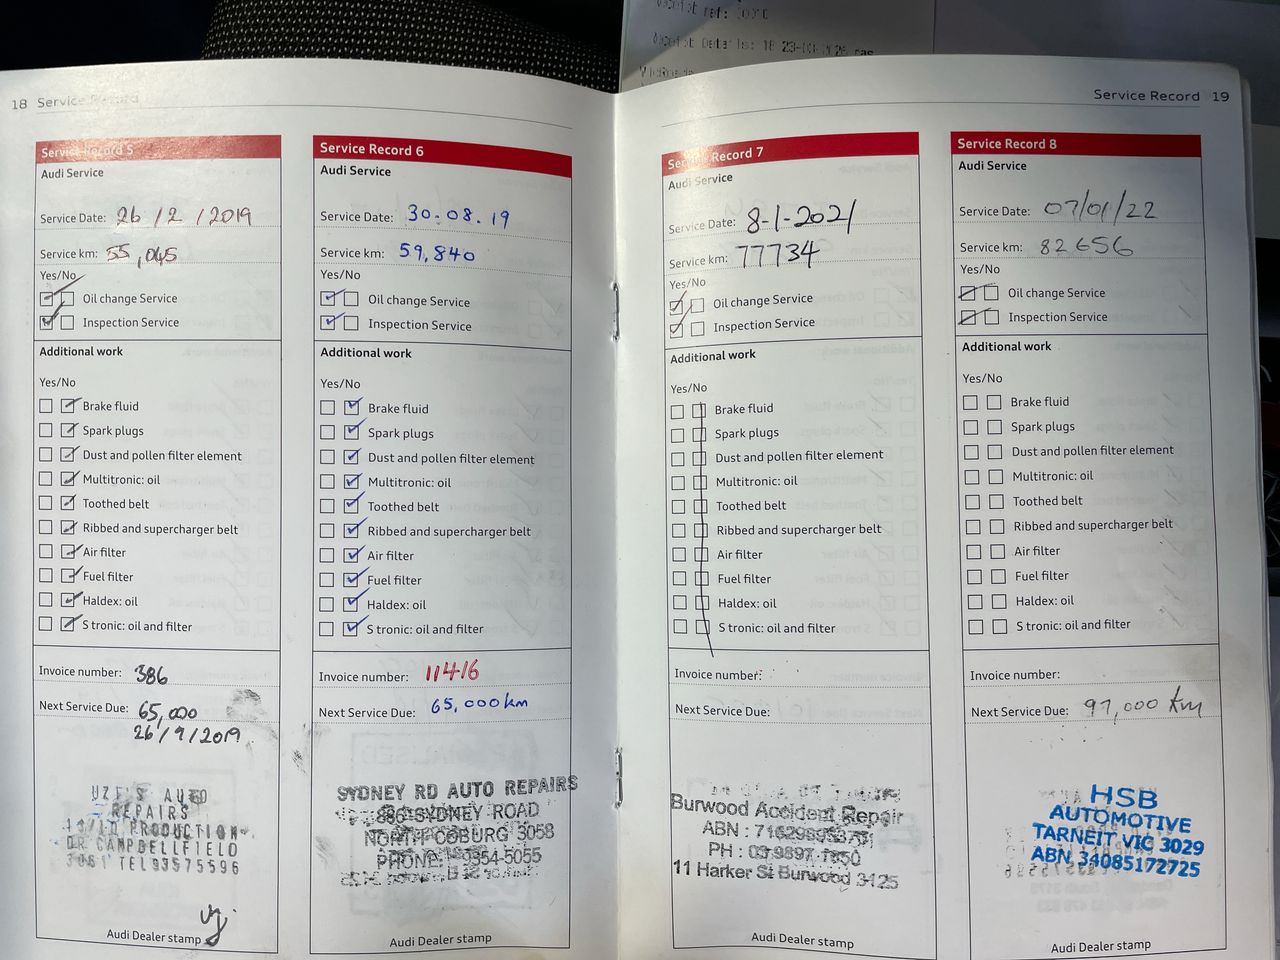 18 Service Record
Service Record 5
Audi Service
Service Date: 26/2/2019
Service km: 55,045
Yes/No
Oil change Service
Inspection Service
Additional work
Yes/No
Brake fluid
Spark plugs
Dust and pollen filter element
Multitronic: oil
Toothed belt
Ribbed and supercharger belt
Air filter
Fuel filter
Haldex: oil
S tronic: oil and filter
Invoice number: 386
Next Service Due: 65,000
26/9/2019
AUTO
REPAIRS
PRODUCTION
DR CAMPBELLFIELD
3061 TEL 93575596
Audi Dealer stamp
Service Record 6
Audi Service
Service Date: 30.08.19
Service km: 59,840
Yes/No
Oil change Service
Inspection Service
Additional work
Yes/No
Brake fluid
Spark plugs
Dust and pollen filter element
Multitronic: oil
Toothed belt
Ribbed and supercharger belt
Air filter
Fuel filter
Haldex: oil
S tronic: oil and filter
Invoice number: 11416
Next Service Due: 65,000 km
SYDNEY RD AUTO REPAIRS
886 SYDNEY ROAD
NORTH COBURG 3058
PHONE: 9354-5055
Audi Dealer stamp
Service Record 19
Service Record 7
Audi Service
Service Date: 8-1-2021
Service km: 77734
Yes/No
Oil change Service
Inspection Service
Additional work
Yes/No
Brake fluid
Spark plugs
Dust and pollen filter element
Multitronic: oil
Toothed belt
Ribbed and supercharger belt
Air filter
Fuel filter
Haldex: oil
S tronic: oil and filter
Invoice number:
Next Service Due:
Burwood Accident Repair
ABN :
PH : 03 9897 1850
11 Harker St Burwood 3125
Audi Dealer stamp
Service Record 8
Audi Service
Service Date: 07/01/22
Service km: 82656
Yes/No
Oil change Service
Inspection Service
Additional work
Yes/No
Brake fluid
Spark plugs
Dust and pollen filter element
Multitronic: oil
Toothed belt
Ribbed and supercharger belt
Air filter
Fuel filter
Haldex: oil
S tronic: oil and filter
Invoice number:
Next Service Due: 97,000 Km
HSB
AUTOMOTIVE
TARNEIT VIC 3029
ABN 34085172725
Audi Dealer stamp